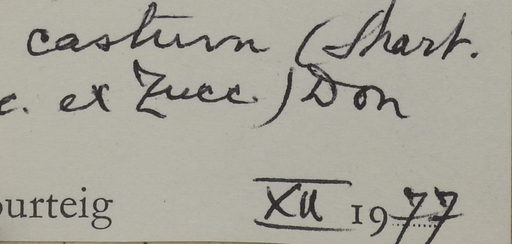 casturn (Shart.
c. ex Zucc.) Don
ourteig
XII 1977